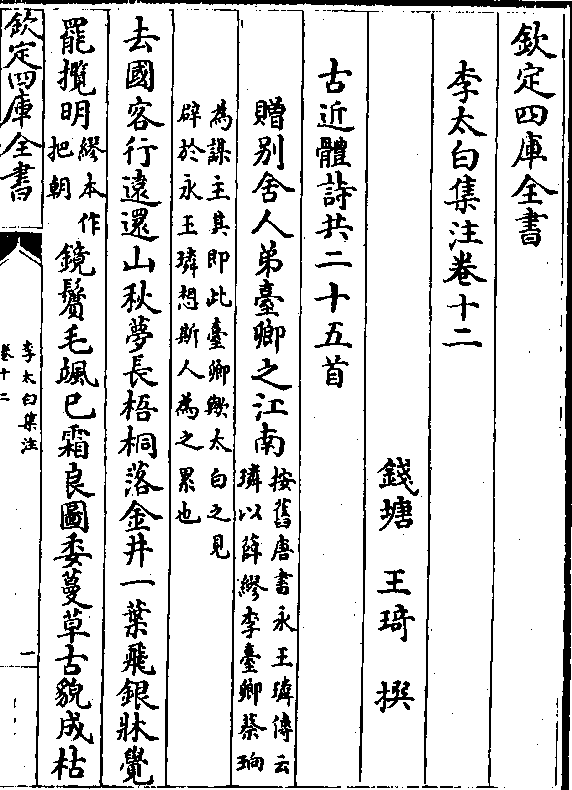 欽定四庫全書
李太白集注卷十二
錢塘 王琦 撰
古近體詩共二十五首
贈别舍人弟臺卿之江南
按舊唐書永王璘傳云
璘以薛鏐李臺卿蔡垧
為謀主其即此臺卿歟太白之見
辟於永王璘想斯人為之累也
去國客行遠還山秋夢長梧桐落金井一葉飛銀牀覺
罷攬明
繆本作
把朝
鏡鬢毛颯已霜良圖委蔓草古貌成枯
欽定四庫全書
李太白集注
卷十二
一